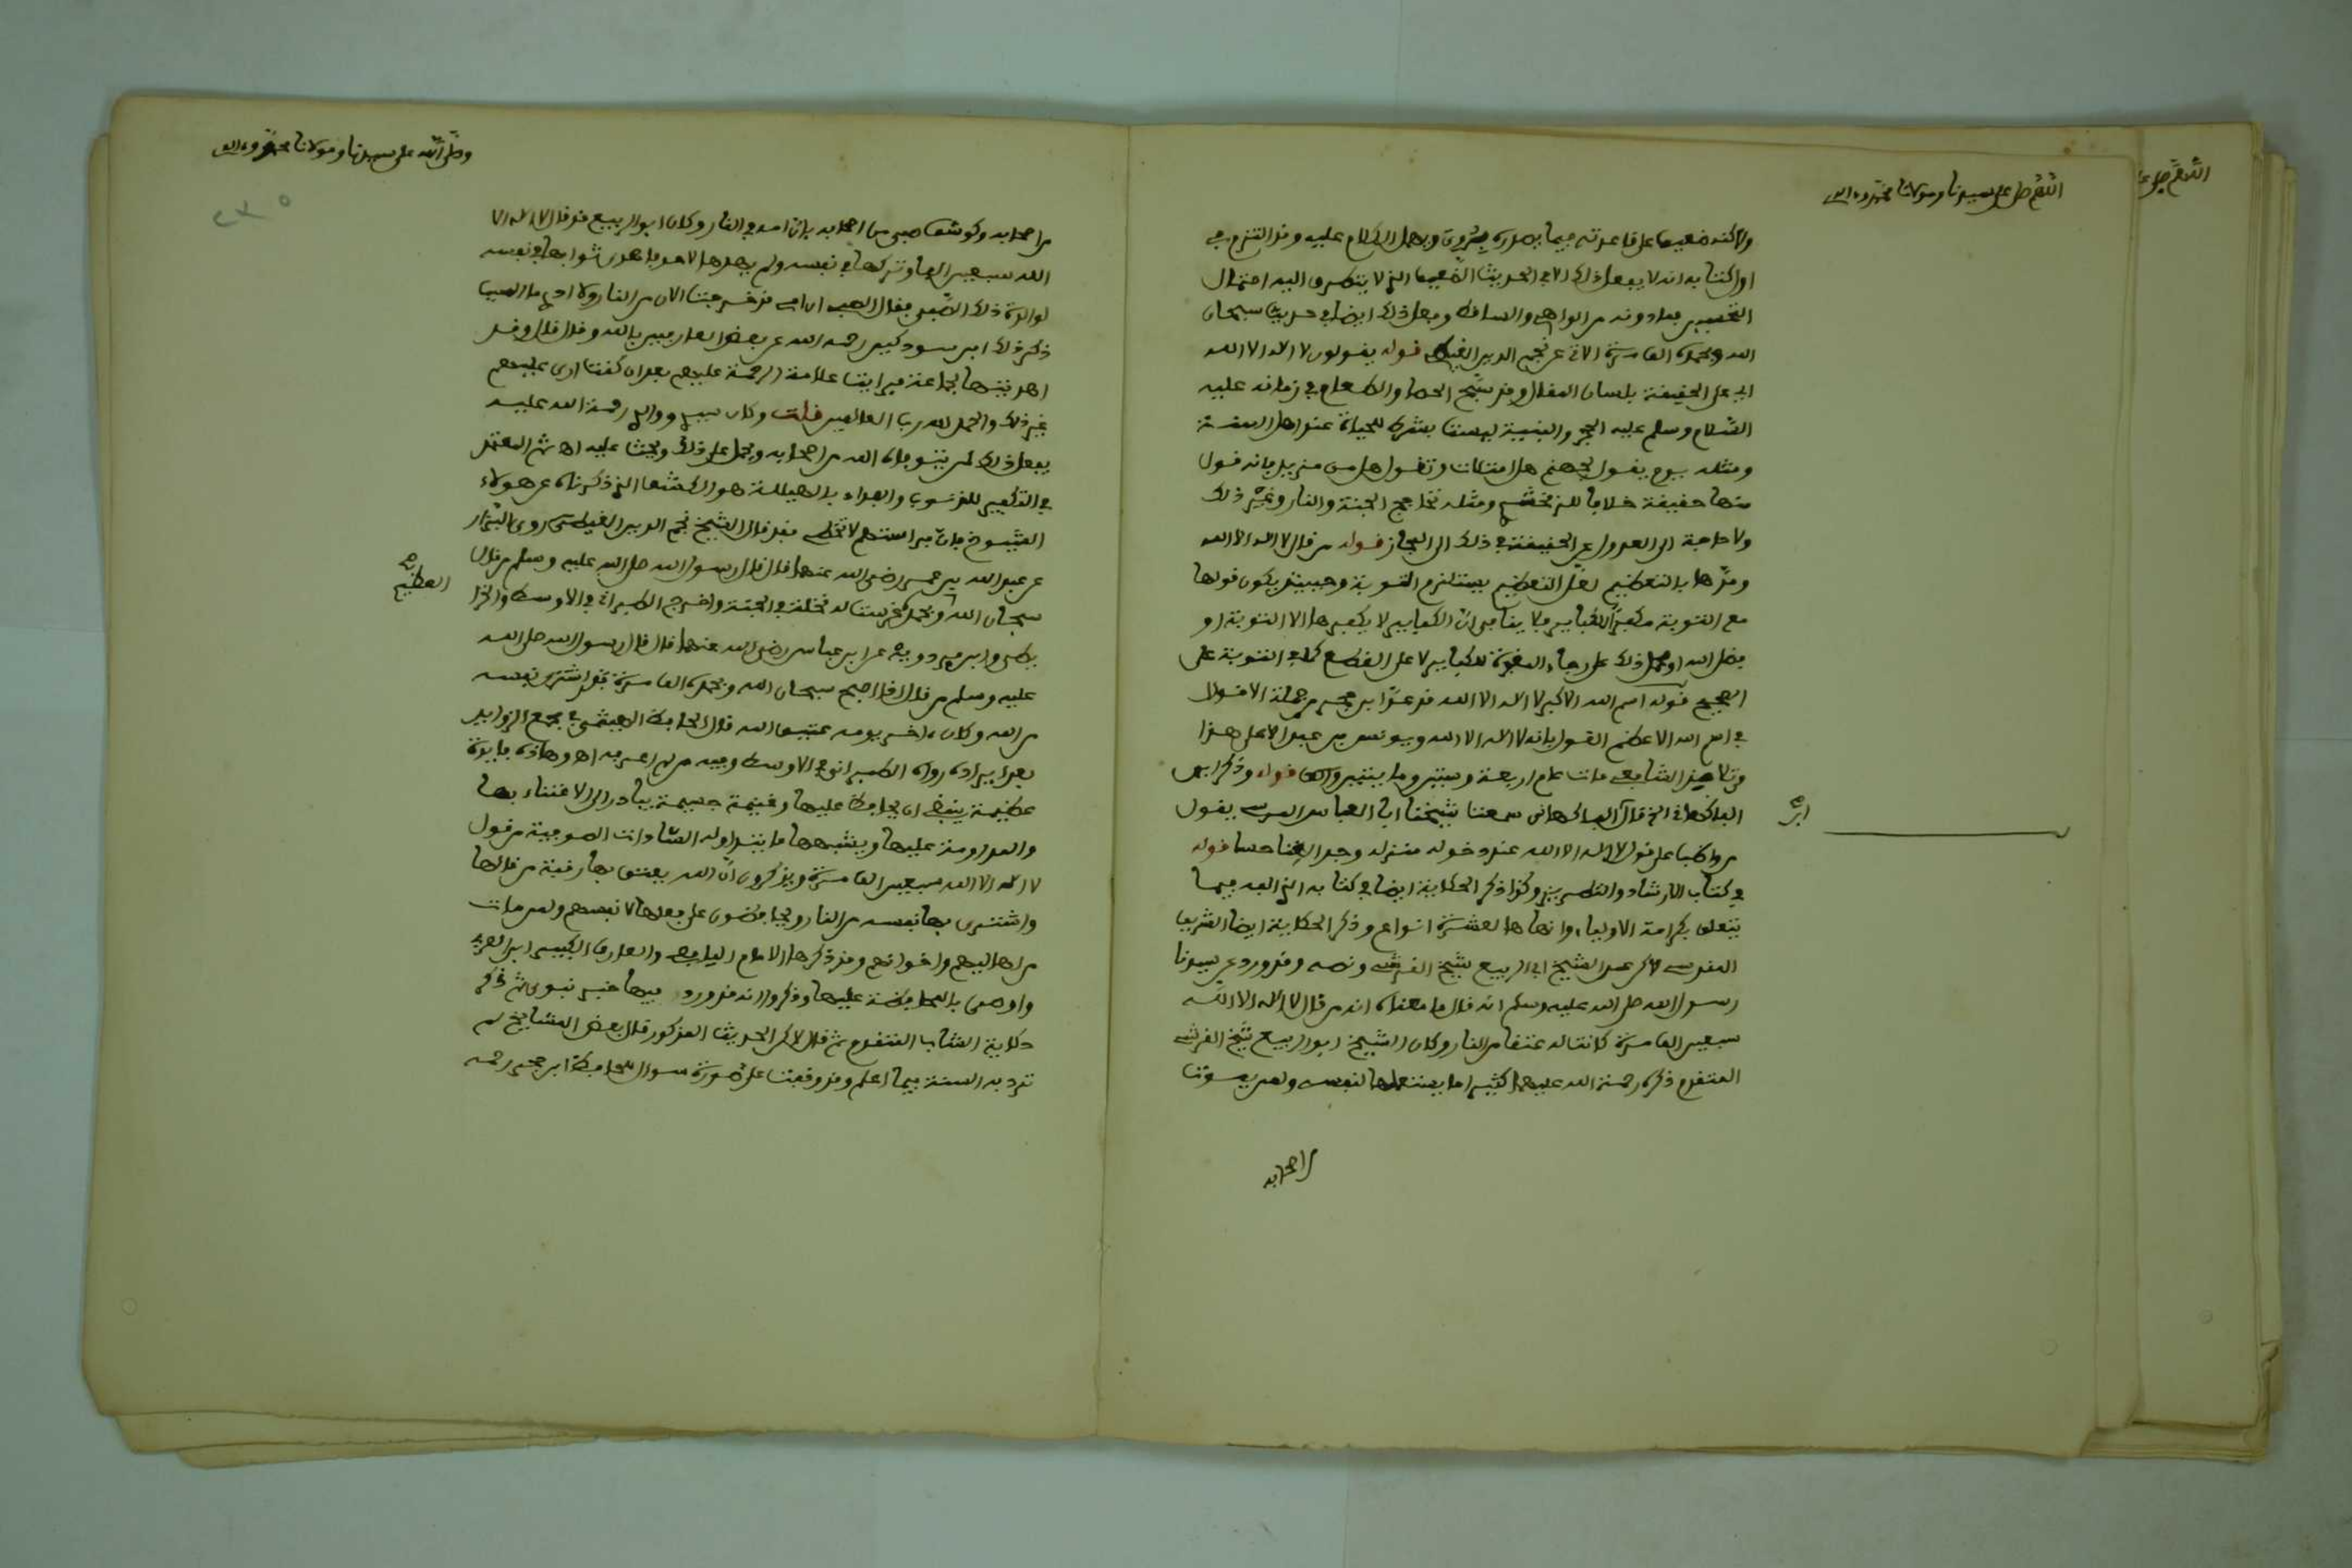 اللهم صل على سيدنا ومولانا محمد وءاله
ولاكنه ضعيف على قاعدته فيما يصدره بروي ويهمل الكلام عليه وقد التزم في
اول كتابه انه لا يفعل ذلك الا في الحديث الضعيف الذي لا يتطرق اليه احتمال
التحسين فما دونه من الواهي والساقط وفعل ذلك ايضا في حديث سبحان
الله وبحمده الف مرة الاتي عن نجم الدين الغيطي قوله يقولون لا اله الا الله
اي على الحقيقة بلسان المقال وقد سبح الحصا والطعام في زمانه عليه
السلام وسلم عليه الحجر والبنية ليست بشرط للحياة عند اهل السنة
ومثله يوم يقول لجهنم هل امتلات وتقول هل من مزيد فانه قول
منها حقيقة خلافا للزمخشري ومثله تحاجج الجنة والنار وغير ذلك
ولا حاجة الى العدول عن الحقيقة في ذلك الى المجاز قوله من قال لا اله الا الله
ومدها بالتعظيم لعل التعظيم يستلزم التوبة وحينئذ يكون قولها
مع التوبة مكفرا للكباير فلا ينافي ان الكباير لا يكفرها الا التوبة او
فضل الله او حمل ذلك على رجاء المغفرة للكباير لا على القطع كما في التوبة على
الصحيح قوله اسم الله الاكبر لا اله الا الله قد عد ابن حجر من جملة الاقوال
في اسم الله الاعظم القول بانه لا اله الا الله ويونس بن عبد الاعلى هذا
من تلاميذ الشافعي مات عام اربعة وستين ومايتين قوله وذكر ابن
الفاكهاني الخ قال الفاكهاني سمعت شيخنا ابا العباس المرسي يقول
ابن
من واظب على قول لا اله الا الله عند دخوله منزله وجد الغنا حسا قوله
في كتاب الارشاد والتطريز وكذا ذكر الحكاية ايضا في كتابه الذي الفه فيما
يتعلق بكرامة الاولياء وانهاها لعشرة انواع وذكر الحكاية ايضا الشريف
المقدسي لاكن عن الشيخ ابي الربيع شيخ القرشي ونصه وقد ورد عن سيدنا
رسول الله صلى الله عليه وسلم انه قال ما معناه انه من قال لا اله الا الله
سبعين الف مرة كانت له عتقا من النار وكان الشيخ ابو الربيع شيخ القرشي
المتقدم ذكره رحمة الله عليهما كثيرا ما يستعملها لنفسه ولمن يموت
من اصحابه
وصلى الله على سيدنا ومولانا محمد وءاله
٢٣٥
من اصحابه وكوشف صبي من اصحابه بان امه في النار وكان ابو الربيع قد قال لا اله الا
الله سبعين الفا وتركها في نفسه ولم يهدها لاحد فاهدى ثوابها في نفسه
لوالدة ذلك الصبي فقال الصبي ان امي قد خرجت الان من النار ولا ادري ما السبب
ذكر ذلك ابن سودكين رحمه الله عن بعض العارفين بالله وقال قال وقد
اهديتها لجماعة فرايت علامة الرحمة عليهم بعد ان كنت ارى عليهم
غير ذلك والحمد لله رب العالمين قلت وكان سيدي ووالدي رحمة الله عليه
يفعل ذلك لمن يتوفاه الله من اصحابه ويحمل على ذلك ويحث عليه اه ثم المعتمد
في التكفير للذنوب والفداء بالهيللة هو الكشف الذي ذكرناه عن هولاء
الشيوخ فان من استدل لا يخطي فقد قال الشيخ نجم الدين الغيطي روى البزار
عن عبد الله بن عمر رضي الله عنهما قال قال رسول الله صلى الله عليه وسلم من قال
سبحان الله وبحمده غرست له نخلة في الجنة واخرج الطبراني في الاوسط والخرا
العظيم
يطي وابن مردويه عن ابن عباس رضي الله عنهما قال قال رسول الله صلى الله
عليه وسلم من قال اذا اصبح سبحان الله وبحمده الف مرة فقد اشترى نفسه
من الله وكان ءاخر يومه عتيق الله قال الحافظ الهيثمي في مجمع الزوايد
بعد ايراده رواه الطبراني في الاوسط وفيه من لم اعرفه اه وهاذه فايدة
عظيمة ينبغي ان يحافظ عليها وغنيمة جسيمة يبادر الى الاعتناء بها
والمداومة عليها ويشبهها ما يتداوله السادات الصوفية من قول
لا اله الا الله سبعين الف مرة ويذكرون ان الله يعتق بها رقبة من قالها
واشترى بها نفسه من النار ويحافظون على فعلها لانفسهم ولمن مات
من اهاليهم واخوانهم وقد ذكرها الامام اليافعي والعارف الكبير ابن العربي
واوصى بالمحافظة عليها وذكروا انه قد ورد فيها خبر نبوي ثم ذكر
حكاية الشاب المتقدم ثم قال لاكن الحديث المذكور قال بعض المشايخ لم
ترد به السنة فيما اعلم وقد وقفت على صورة سوال للحافظ ابن حجر رحمه